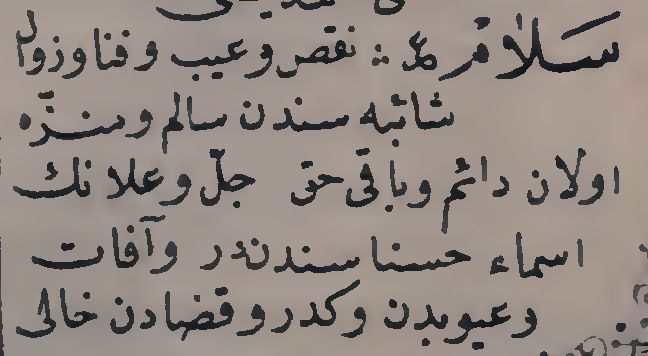 سلام ع : نقص وعیب وفنا وزوال
شائبه سندن سالم ومنزّه
اولان دائم وباقی حق جلّ وعلا نك
اسماء حسنا سندندر وآفات
وعیوبدن وكدر وقضادن خالی